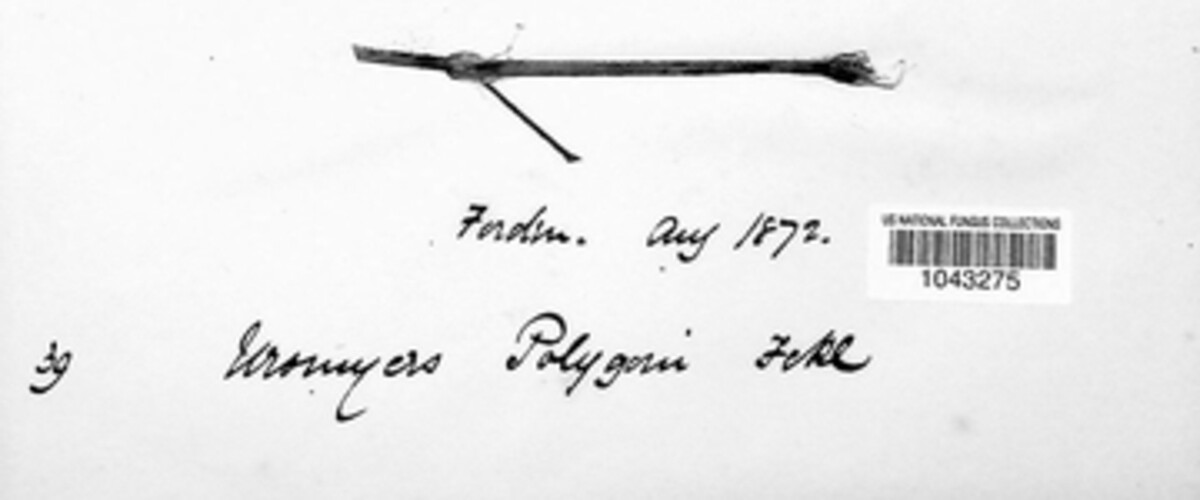 Aug 1872.
US NATIONAL FUNGUS COLLECTIONS
1043275
39 Uromyces Polygoni Fckl